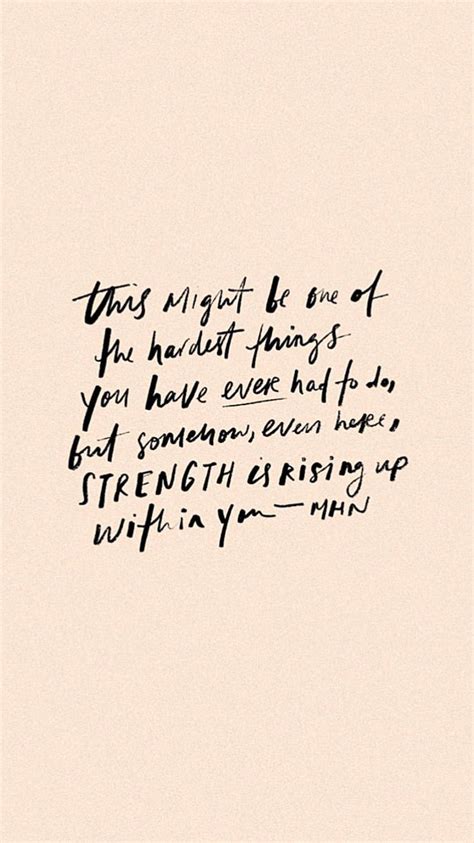 this might be one of
the hardest things
you have ever had to do,
but somehow, even here,
STRENGTH is rising up
within you — MHN